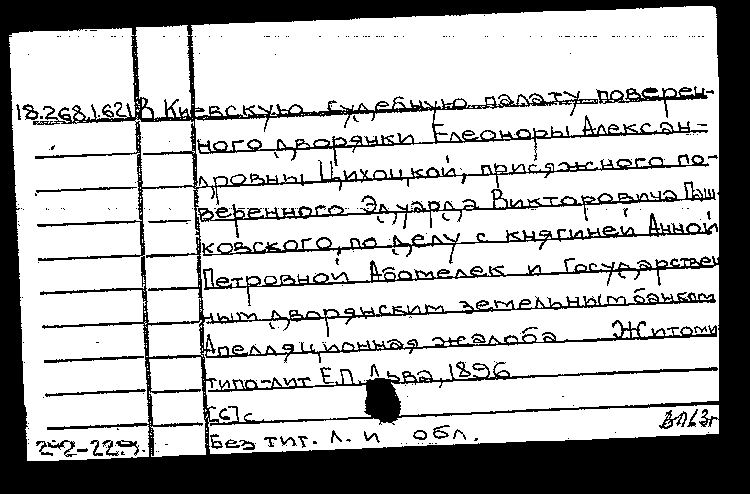 18.268.1.621 В Киевскую судебную палату поверен-
ного дворянки Елеоноры Алексан-
дровны Цихоцкой, присяжного по-
веренного Эдуарда Викторовича Паш-
ковского, по делу с княгиней Анной
Петровной Абамелек и Государствен
ным дворянским земельным банком
Апелляционная жалоба Житоми
типо-лит Е.П. Льва, 1896
[6] с
Без тит. л. и обл.